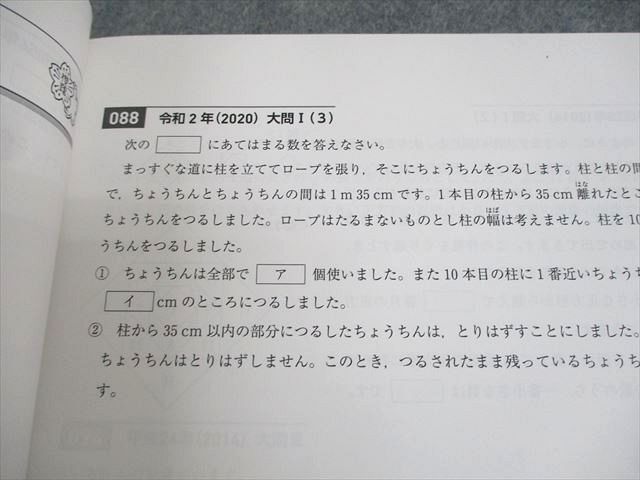 088 令和2年(2020) 大問Ⅰ(3)
次の にあてはまる数を答えなさい。
まっすぐな道に柱を立ててロープを張り，そこにちょうちんをつるします。柱と柱の間
で，ちょうちんとちょうちんの間は1m35cmです。1本目の柱から35cm離れたとこ
ちょうちんをつるしました。ロープはたるまないものとし柱の幅は考えません。柱を10
うちんをつるしました。
① ちょうちんは全部で ア 個使いました。また10本目の柱に1番近いちょうち
イ cmのところにつるしました。
② 柱から35cm以内の部分につるしたちょうちんは，とりはずすことにしました。
ちょうちんはとりはずしません。このとき，つるされたまま残っているちょうち
す。